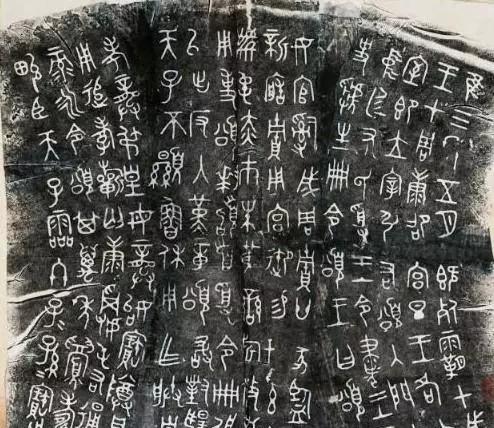 隹三年五月既死霸甲戌
王才周康邵宮旦王各
室即立宰引右頌入門立
氏受王令書王
史虢生冊令頌王曰頌
女官𤔲成周貯廿家監
新造貯用宮御易女玄衣
黹屯赤巿朱黃鑾旂攸
用事頌拜稽首受令冊佩
以出反入堇章頌敢對揚
天子不顯魯休用乍朕皇
考龏叔皇母龏始寶尊鼎
用追孝康屯右
彔永令頌其萬年眉壽
畯臣天子霝冬子子孫孫寶用